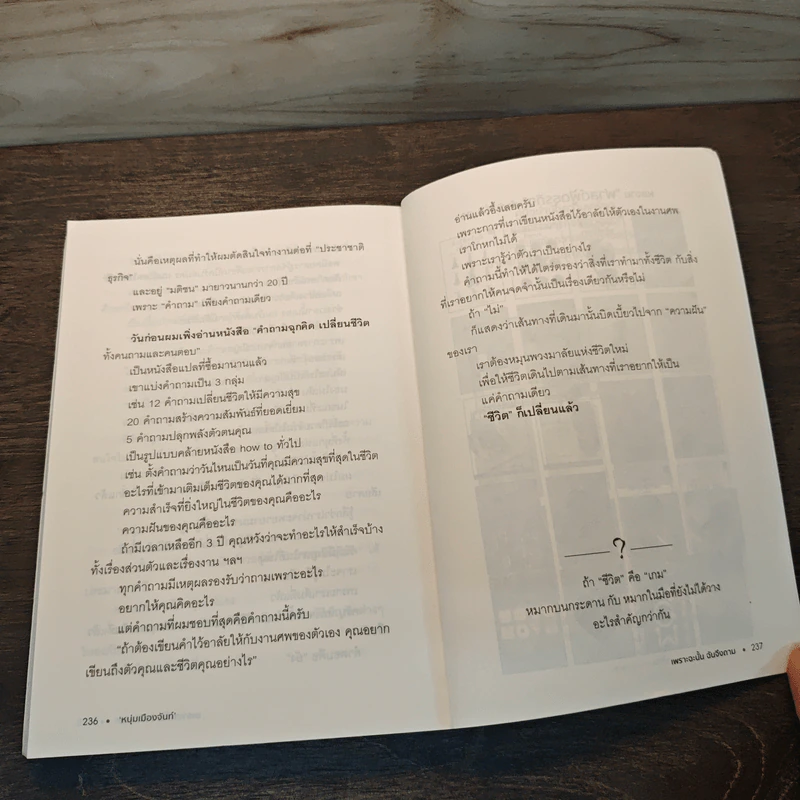 นั่นคือเหตุผลที่ทำให้ผมตัดสินใจทำงานต่อที่ “ประชาชาติ
ธุรกิจ”
และอยู่ “มติชน” มายาวนานกว่า 20 ปี
เพราะ “คำถาม” เพียงคำถามเดียว
วันก่อนผมเพิ่งอ่านหนังสือ “คำถามฉุกคิด เปลี่ยนชีวิต
ทั้งคนถามและคนตอบ”
เป็นหนังสือแปลที่ซื้อมานานแล้ว
เขาแบ่งคำถามเป็น 3 กลุ่ม
เช่น 12 คำถามเปลี่ยนชีวิตให้มีความสุข
20 คำถามสร้างความสัมพันธ์ที่ยอดเยี่ยม
5 คำถามปลุกพลังตัวตนคุณ
เป็นรูปแบบคล้ายหนังสือ how to ทั่วไป
เช่น ตั้งคำถามว่าวันไหนเป็นวันที่คุณมีความสุขที่สุดในชีวิต
อะไรที่เข้ามาเติมเต็มชีวิตของคุณได้มากที่สุด
ความสำเร็จที่ยิ่งใหญ่ในชีวิตของคุณคืออะไร
ความฝันของคุณคืออะไร
ถ้ามีเวลาเหลืออีก 3 ปี คุณหวังว่าจะทำอะไรให้สำเร็จบ้าง
ทั้งเรื่องส่วนตัวและเรื่องงาน ฯลฯ
ทุกคำถามมีเหตุผลรองรับว่าถามเพราะอะไร
อยากให้คุณคิดอะไร
แต่คำถามที่ผมชอบที่สุดคือคำถามนี้ครับ
“ถ้าต้องเขียนคำไว้อาลัยให้กับงานศพของตัวเอง คุณอยาก
เขียนถึงตัวคุณและชีวิตคุณอย่างไร”
236 • ‘หนุ่มเมืองจันท์’
อ่านแล้วอึ้งเลยครับ
เพราะการที่เราเขียนหนังสือไว้อาลัยให้ตัวเองในงานศพ
เราโกหกไม่ได้
เพราะเรารู้ว่าตัวเราเป็นอย่างไร
คำถามนี้ทำให้ได้ไตร่ตรองว่าสิ่งที่เราทำมาทั้งชีวิต กับสิ่ง
ที่เราอยากให้คนจดจำนั้นเป็นเรื่องเดียวกันหรือไม่
ถ้า “ไม่”
ก็แสดงว่าเส้นทางที่เดินมานั้นบิดเบี้ยวไปจาก “ความฝัน”
ของเรา
เราต้องหมุนพวงมาลัยแห่งชีวิตใหม่
เพื่อให้ชีวิตเดินไปตามเส้นทางที่เราอยากให้เป็น
แค่คำถามเดียว
“ชีวิต” ก็เปลี่ยนแล้ว
?
ถ้า “ชีวิต” คือ “เกม”
หมากบนกระดาน กับ หมากในมือที่ยังไม่ได้วาง
อะไรสำคัญกว่ากัน
เพราะฉะนั้น ฉันจึงถาม • 237